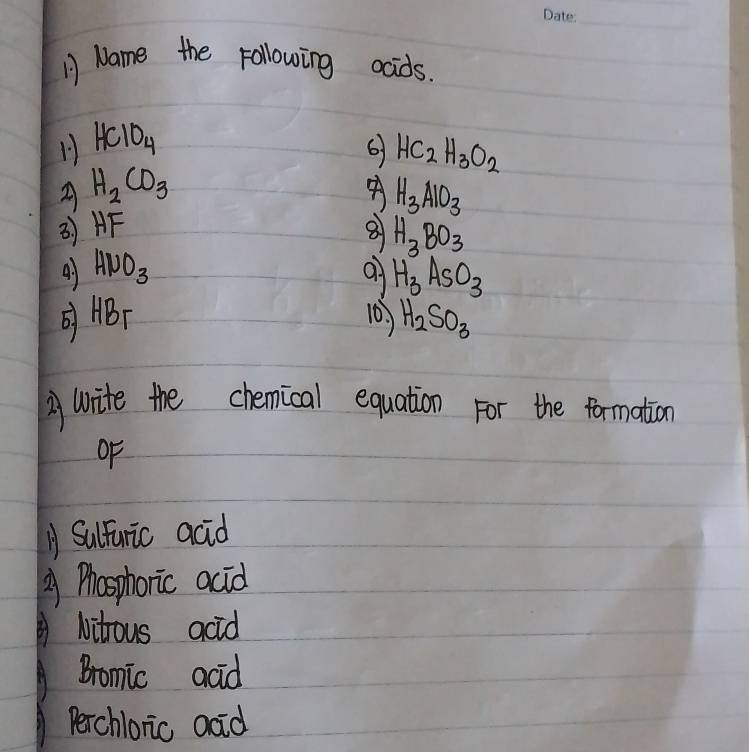 Date:
1.) Name the Following acids.
1.) HClO4
2) H2CO3
3.) HF
4.) HNO3
5.) HBr
6) HC2H3O2
7) H3AlO3
8) H3BO3
9.) H3AsO3
10.) H2SO3
2) Write the chemical equation For the formation
OF
1) Sulfuric acid
2) Phosphoric acid
3) Nitrous acid
4) Bromic acid
5) Perchloric acid